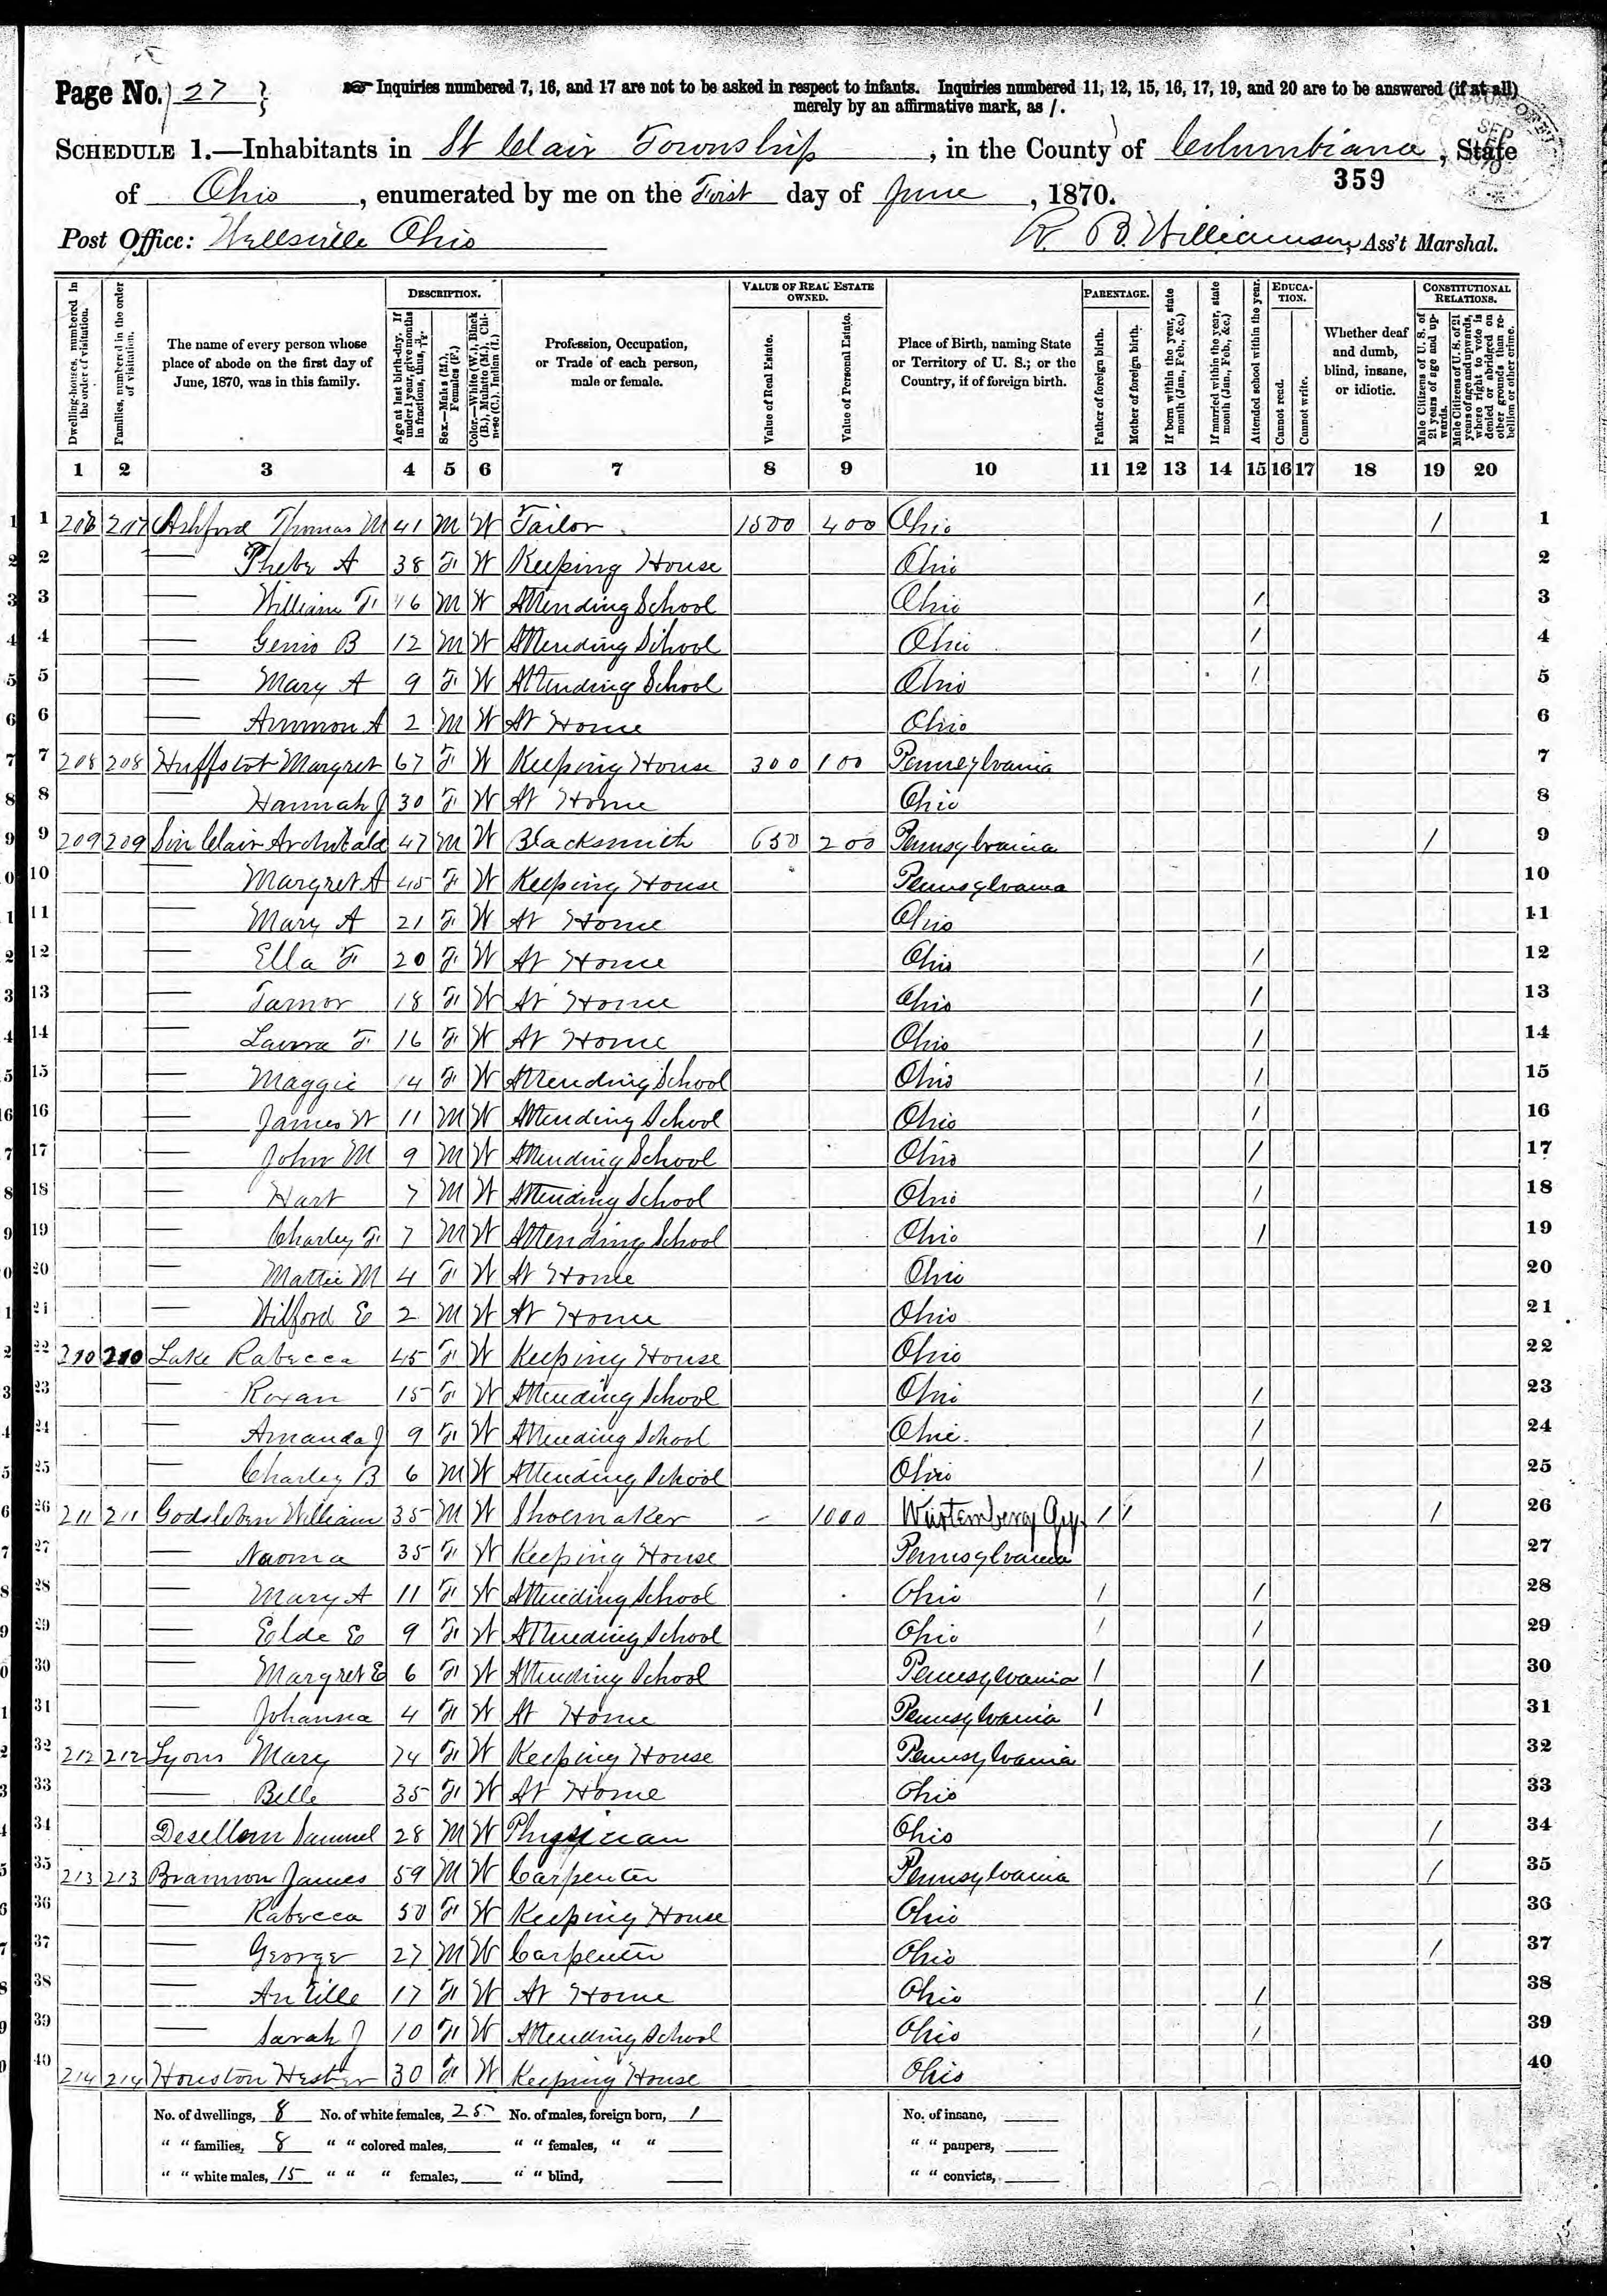 Page No. 27
Inquiries numbered 7, 16, and 17 are not to be asked in respect to infants. Inquiries numbered 11, 12, 15, 16, 17, 19, and 20 are to be answered (if at all)
merely by an affirmative mark, as /.
SCHEDULE 1.—Inhabitants in St Clair Township, in the County of Columbiana, State
359
of Ohio, enumerated by me on the First day of June, 1870.
Post Office: Wellsville Ohio R. B. Williamson, Ass't Marshal.
Dwelling-houses, numbered in the order of visitation.
Families, numbered in the order of visitation.
The name of every person whose place of abode on the first day of June, 1870, was in this family.
DESCRIPTION.
Age at last birth-day. If under 1 year, give months in fractions, thus,
Sex.—Males (M.), Females (F.)
Color.—White (W.), Black (B.), Mulatto (M.), Chinese (C.), Indian (I.)
Profession, Occupation, or Trade of each person, male or female.
VALUE OF REAL ESTATE OWNED.
Value of Real Estate.
Value of Personal Estate.
Place of Birth, naming State or Territory of U. S.; or the Country, if of foreign birth.
PARENTAGE.
Father of foreign birth.
Mother of foreign birth.
If born within the year, state month (Jan., Feb., &c.)
If married within the year, state month (Jan., Feb., &c.)
Attended school within the year.
EDUCATION.
Cannot read.
Cannot write.
Whether deaf and dumb, blind, insane, or idiotic.
CONSTITUTIONAL RELATIONS.
Male Citizens of U. S. of 21 years of age and upwards.
Male Citizens of U. S. of 21 years of age and upwards, where right to vote is denied or abridged on other grounds than rebellion or other crime.
1 2 3 4 5 6 7 8 9 10 11 12 13 14 15 16 17 18 19 20
1 207 Ashford Thomas M 41 M W Tailor 1500 400 Ohio / 1
2 — Phebe A 38 F W Keeping House Ohio 2
3 — William F 16 M W Attending School Ohio / 3
4 — B 12 M W Attending School Ohio / 4
5 — Mary A 9 F W Attending School Ohio / 5
6 — Ammon A 2 M W At Home Ohio 6
7 208 208 Huffstot Margret 67 F W Keeping House 300 100 Pennsylvania 7
8 — Hannah J 30 F W At Home Ohio 8
9 209 209 Sin Clair Archibald 47 M W Blacksmith 650 200 Pennsylvania / 9
10 — Margret A 45 F W Keeping House Pennsylvania 10
11 — Mary A 21 F W At Home Ohio 11
12 — Ella F 20 F W At Home Ohio / 12
13 — Tamor 18 F W At Home Ohio / 13
14 — Laura F 16 F W At Home Ohio / 14
15 — Maggie 14 F W Attending School Ohio / 15
16 — James W 11 M W Attending School Ohio / 16
17 — John M 9 M W Attending School Ohio / 17
18 — Hart 7 M W Attending School Ohio / 18
19 — Charley F 7 M W Attending School Ohio / 19
20 — Mattie M 4 F W At Home Ohio 20
21 — Wilford E 2 M W At Home Ohio 21
22 210 210 Lake Rabecca 45 F W Keeping House Ohio 22
23 — Roxan 15 F W Attending School Ohio / 23
24 — Amanda J 9 F W Attending School Ohio / 24
25 — Charley B 6 M W Attending School Ohio / 25
26 211 211 William 35 M W Shoemaker - 1000 Wurtemberg / / / 26
27 — Naoma 35 F W Keeping House Pennsylvania 27
28 — Mary A 11 F W Attending School Ohio / / 28
29 — Elde E 9 F W Attending School Ohio / / 29
30 — Margret E 6 F W Attending School Pennsylvania / / 30
31 — Johanna 4 F W At Home Pennsylvania / 31
32 212 212 Lyons Mary 74 F W Keeping House Pennsylvania 32
33 — Belle 35 F W At Home Ohio 33
34 Desellem Samuel 28 M W Physician Ohio / 34
35 213 213 Brannon James 59 M W Carpenter Pennsylvania / 35
36 — Rabecca 50 F W Keeping House Ohio 36
37 — George 27 M W Carpenter Ohio / 37
38 — 17 F W At Home Ohio / 38
39 — Sarah J 10 F W Attending School Ohio / 39
40 214 214 Houston Hester 30 F W Keeping House Ohio 40
No. of dwellings, 8 No. of white females, 25 No. of males, foreign born, 1 No. of insane,
" " families, 8 " " colored males, " " females, " " " " paupers,
" " white males, 15 " " " females, " " blind, " " convicts,